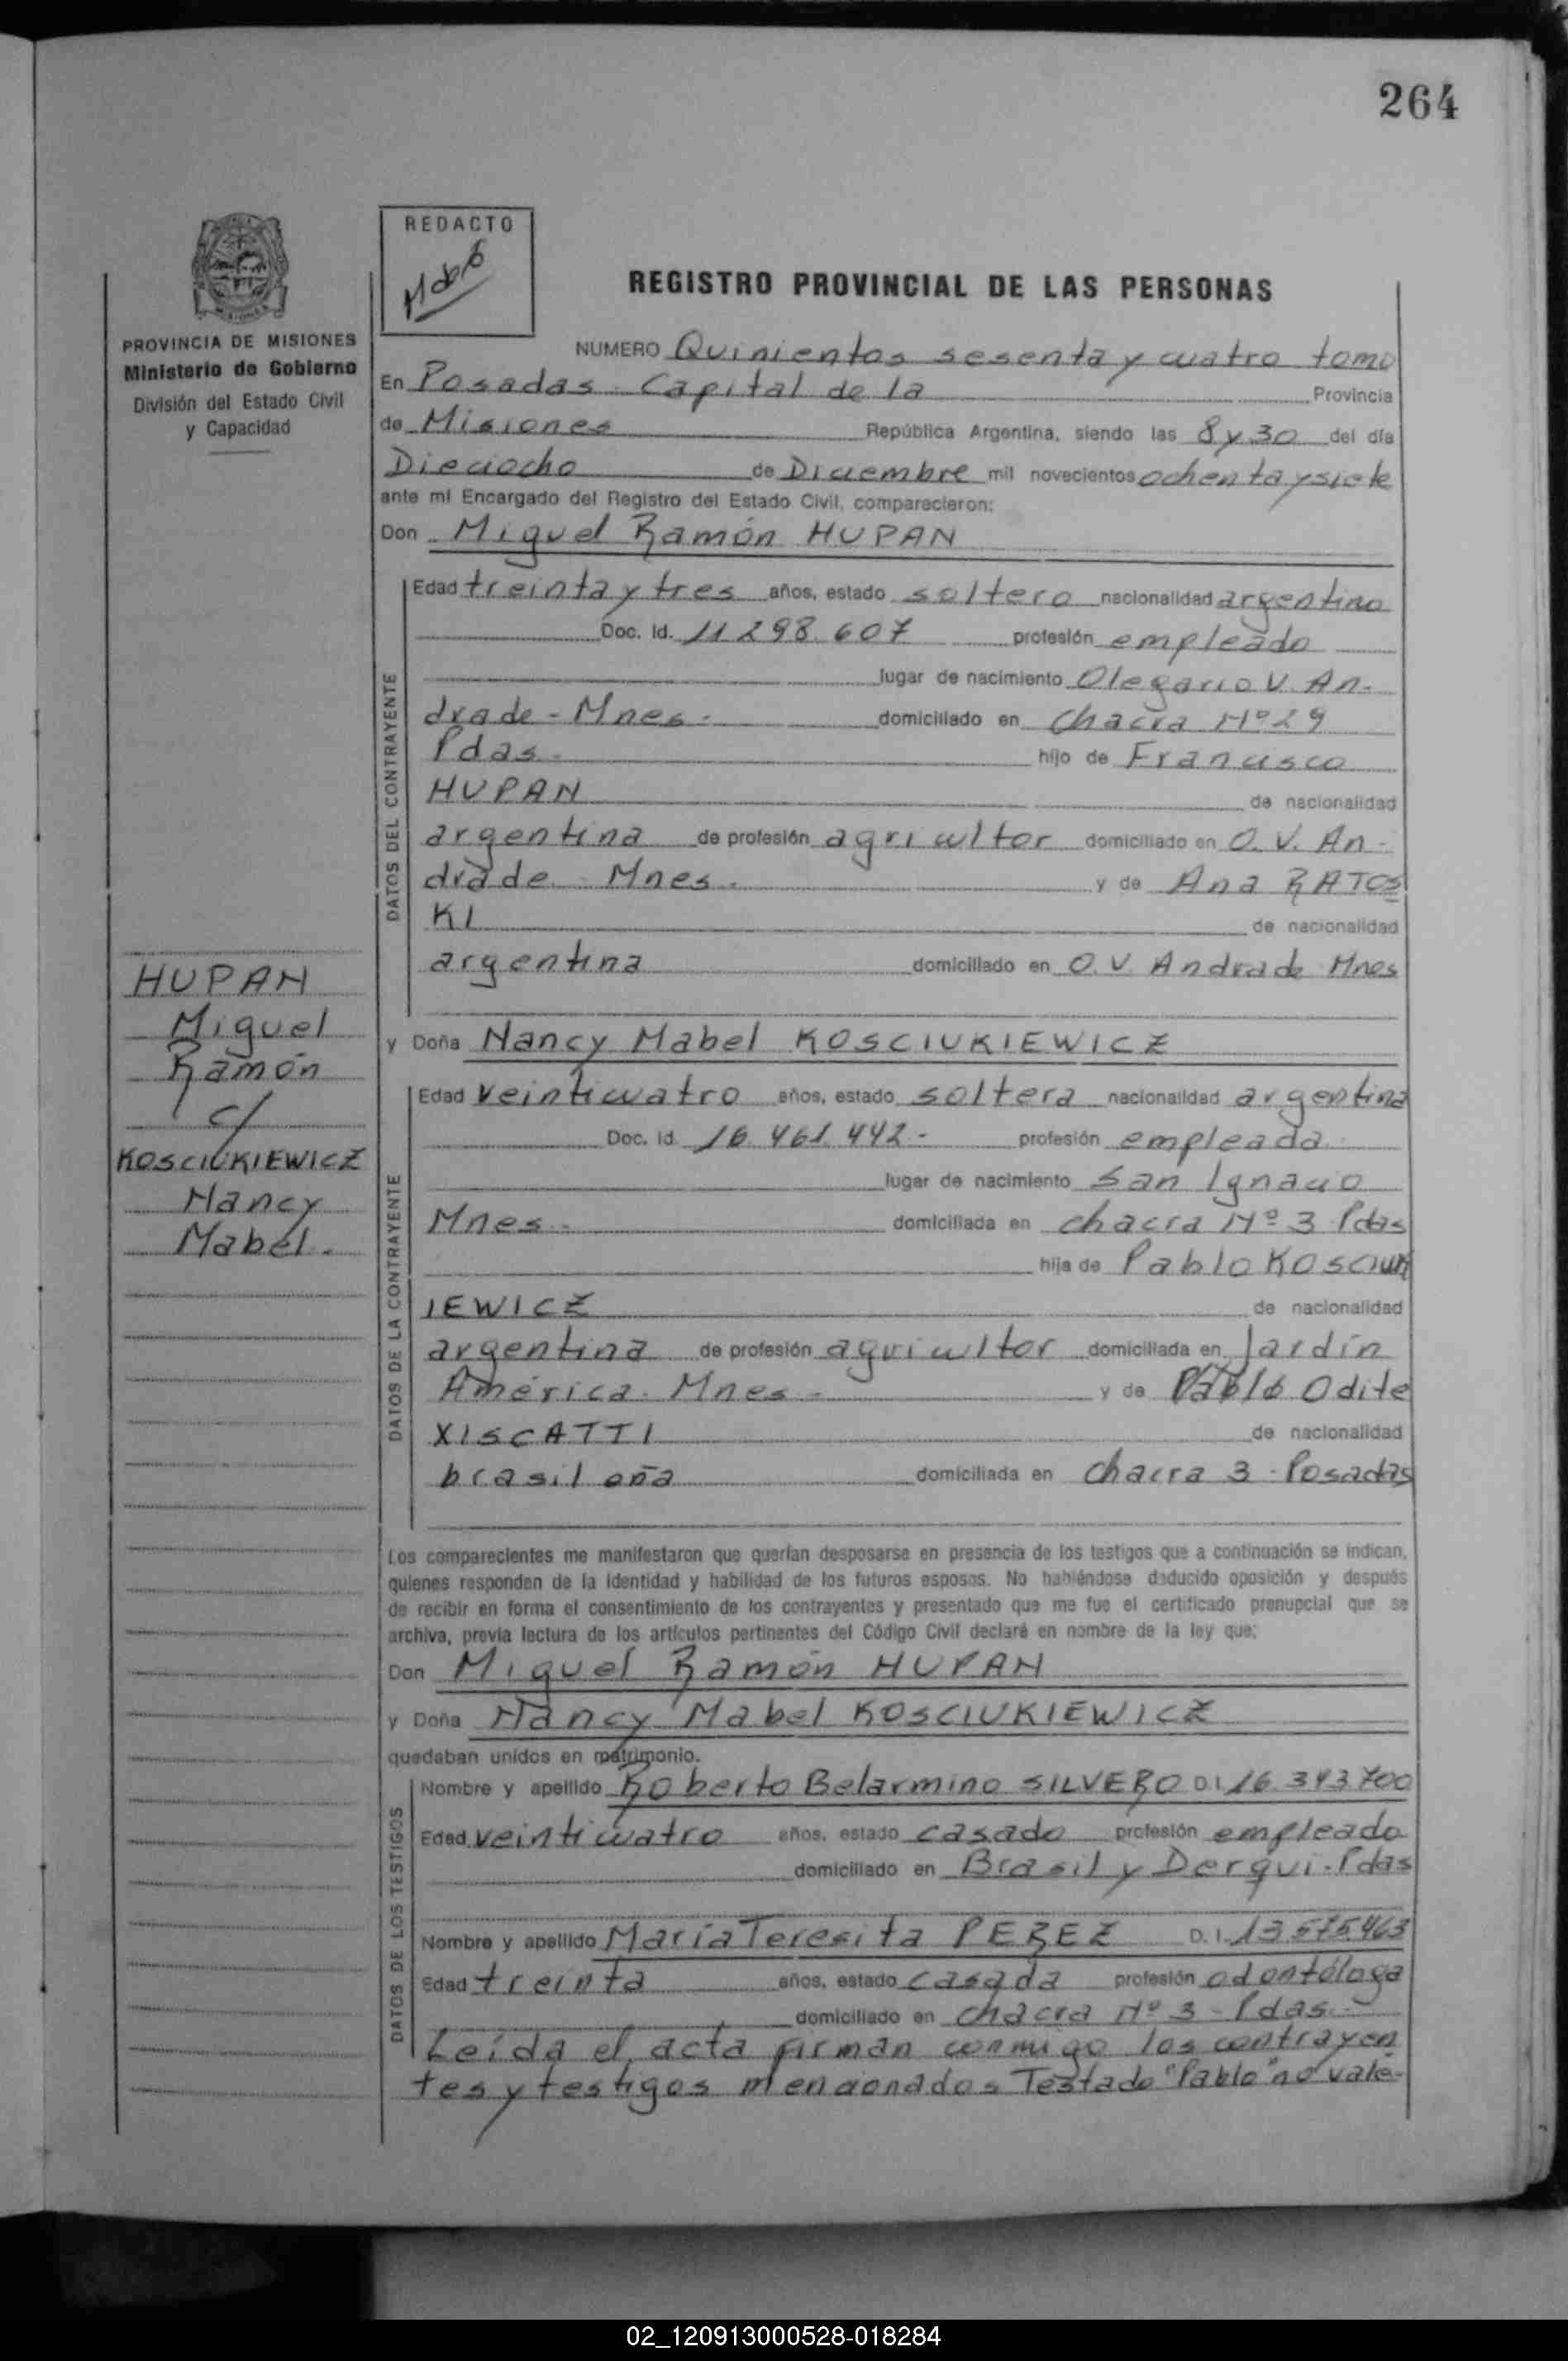 264
REDACTO
REGISTRO PROVINCIAL DE LAS PERSONAS
PROVINCIA DE MISIONES
Ministerio de Gobierno
División del Estado Civil
y Capacidad
NUMERO Quinientos sesenta y cuatro tomo
En Posadas Capital de la Provincia
de Misiones República Argentina, siendo las 8 y 30 del día
Dieciocho de Diciembre mil novecientos ochenta y siete
ante mi Encargado del Registro del Estado Civil, comparecieron:
Don Miguel Ramón HUPAN
DATOS DEL CONTRAYENTE
Edad treinta y tres años, estado soltero nacionalidad argentino
Doc. Id. 11 298.607 profesión empleado
lugar de nacimiento Olegario V. An-
drade - Mnes. domiciliado en chacra Nº 29
Pdas. hijo de Francisco
HUPAN de nacionalidad
argentina de profesión agricultor domiciliado en O. V. An-
drade Mnes. y de Ana RATOS
KI de nacionalidad
argentina domiciliado en O. V. Andrade Mnes
HUPAN
Miguel
Ramón
c/
KOSCIUKIEWICZ
Nancy
Mabel.
y Doña Nancy Mabel KOSCIUKIEWICZ
DATOS DE LA CONTRAYENTE
Edad veinticuatro años, estado soltera nacionalidad argentina
Doc. Id. 16.461.442.- profesión empleada
lugar de nacimiento San Ignacio
Mnes. domiciliada en chacra Nº 3 Pdas
hija de Pablo KOSCIUK
IEWICZ de nacionalidad
argentina de profesión agricultor domiciliada en Jardín
América. Mnes - y de Pablo Odite
XISCATTI de nacionalidad
brasileña domiciliada en chacra 3 - Posadas
Los comparecientes me manifestaron que querían desposarse en presencia de los testigos que a continuación se indican,
quienes responden de la identidad y habilidad de los futuros esposos. No habiéndose deducido oposición y después
de recibir en forma el consentimiento de los contrayentes y presentado que me fue el certificado prenupcial que se
archiva, previa lectura de los artículos pertinentes del Código Civil declaré en nombre de la ley que:
Don Miguel Ramón HUPAN
y Doña Nancy Mabel KOSCIUKIEWICZ
quedaban unidos en matrimonio.
DATOS DE LOS TESTIGOS
Nombre y apellido Roberto Belarmino SILVERO D.I. 16.343.700
Edad veinticuatro años, estado casado profesión empleado
domiciliado en Brasil y Derqui - Pdas
Nombre y apellido María Teresita PEREZ D.I. 13.575.463
Edad treinta años, estado casada profesión odontóloga
domiciliado en chacra Nº 3 - Pdas.-
Leída el acta firman conmigo los contrayen
tes y testigos mencionados Testado "Pablo" no vale-
02_120913000528-018284